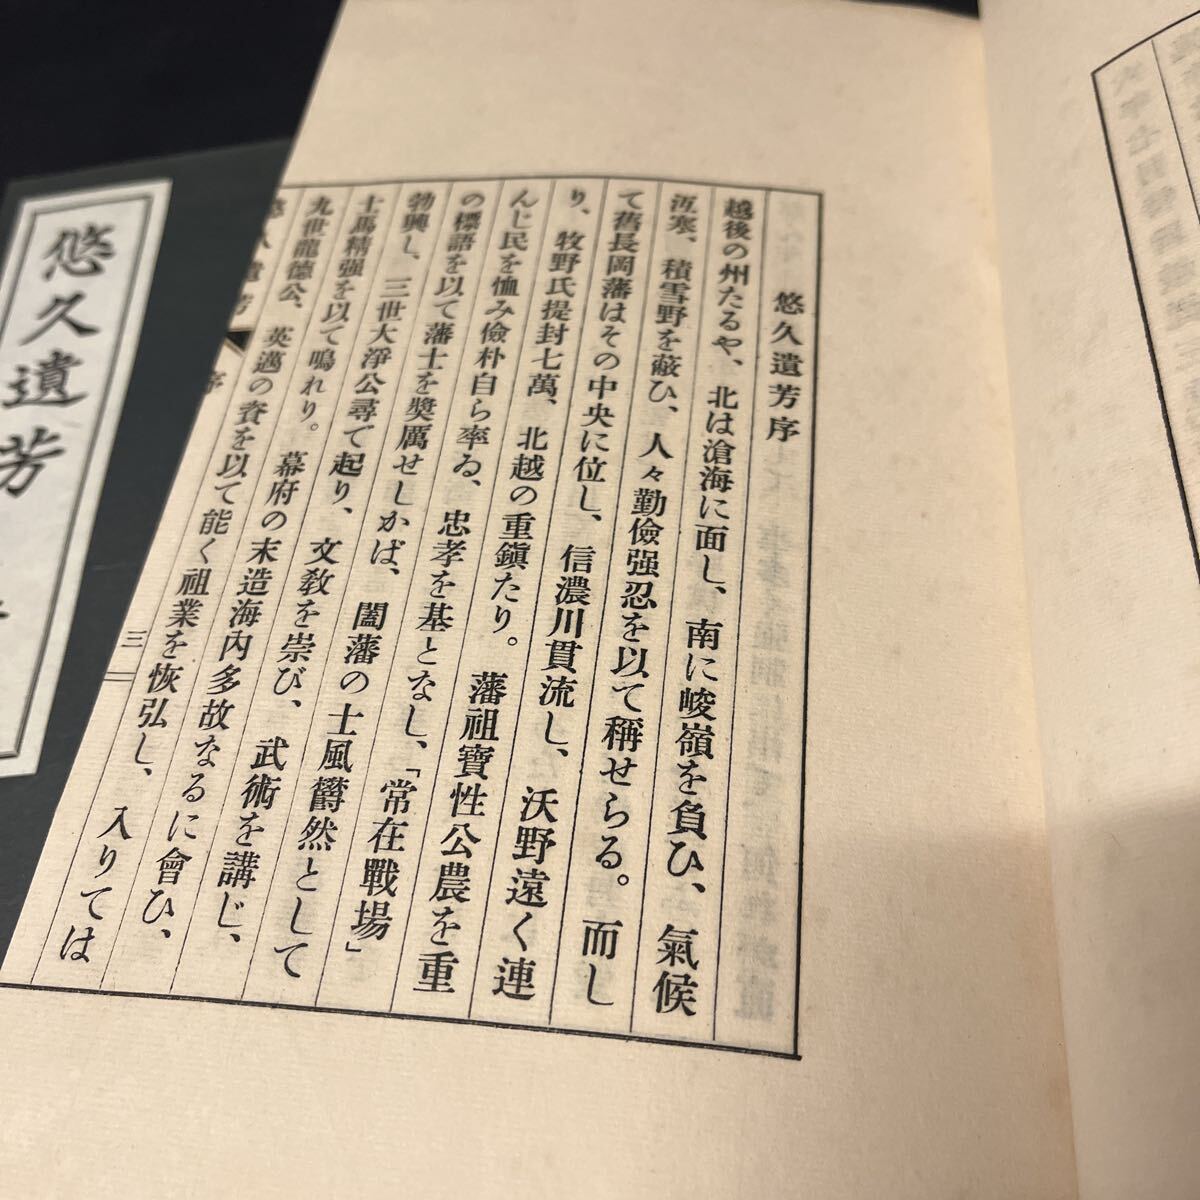 悠久遺芳序
越後の州たるや、北は滄海に面し、南に峻嶺を負ひ、氣候
冱寒、積雪野を蔽ひ、人々勤儉强忍を以て稱せらる。而し
て舊長岡藩はその中央に位し、信濃川貫流し、沃野遠く連
り、牧野氏提封七萬、北越の重鎭たり。藩祖寶性公農を重
んじ民を恤み儉朴自ら率ゐ、忠孝を基となし、「常在戰場」
の標語を以て藩士を奬厲せしかば、闔藩の士風欝然として
勃興し、三世大淨公尋で起り、文敎を崇び、武術を講じ、
士馬精强を以て鳴れり。幕府の末造海內多故なるに會ひ、
九世龍德公、英邁の資を以て能く祖業を恢弘し、入りては
悠久遺芳
序
三
悠久遺芳